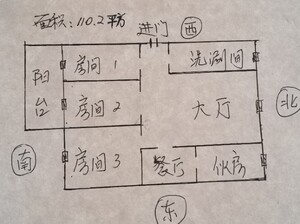 面积:110.2平方
进门
西
阳台
房间1
洗涮间
房间2
大厅
北
南
房间3
餐厅
伙房
东